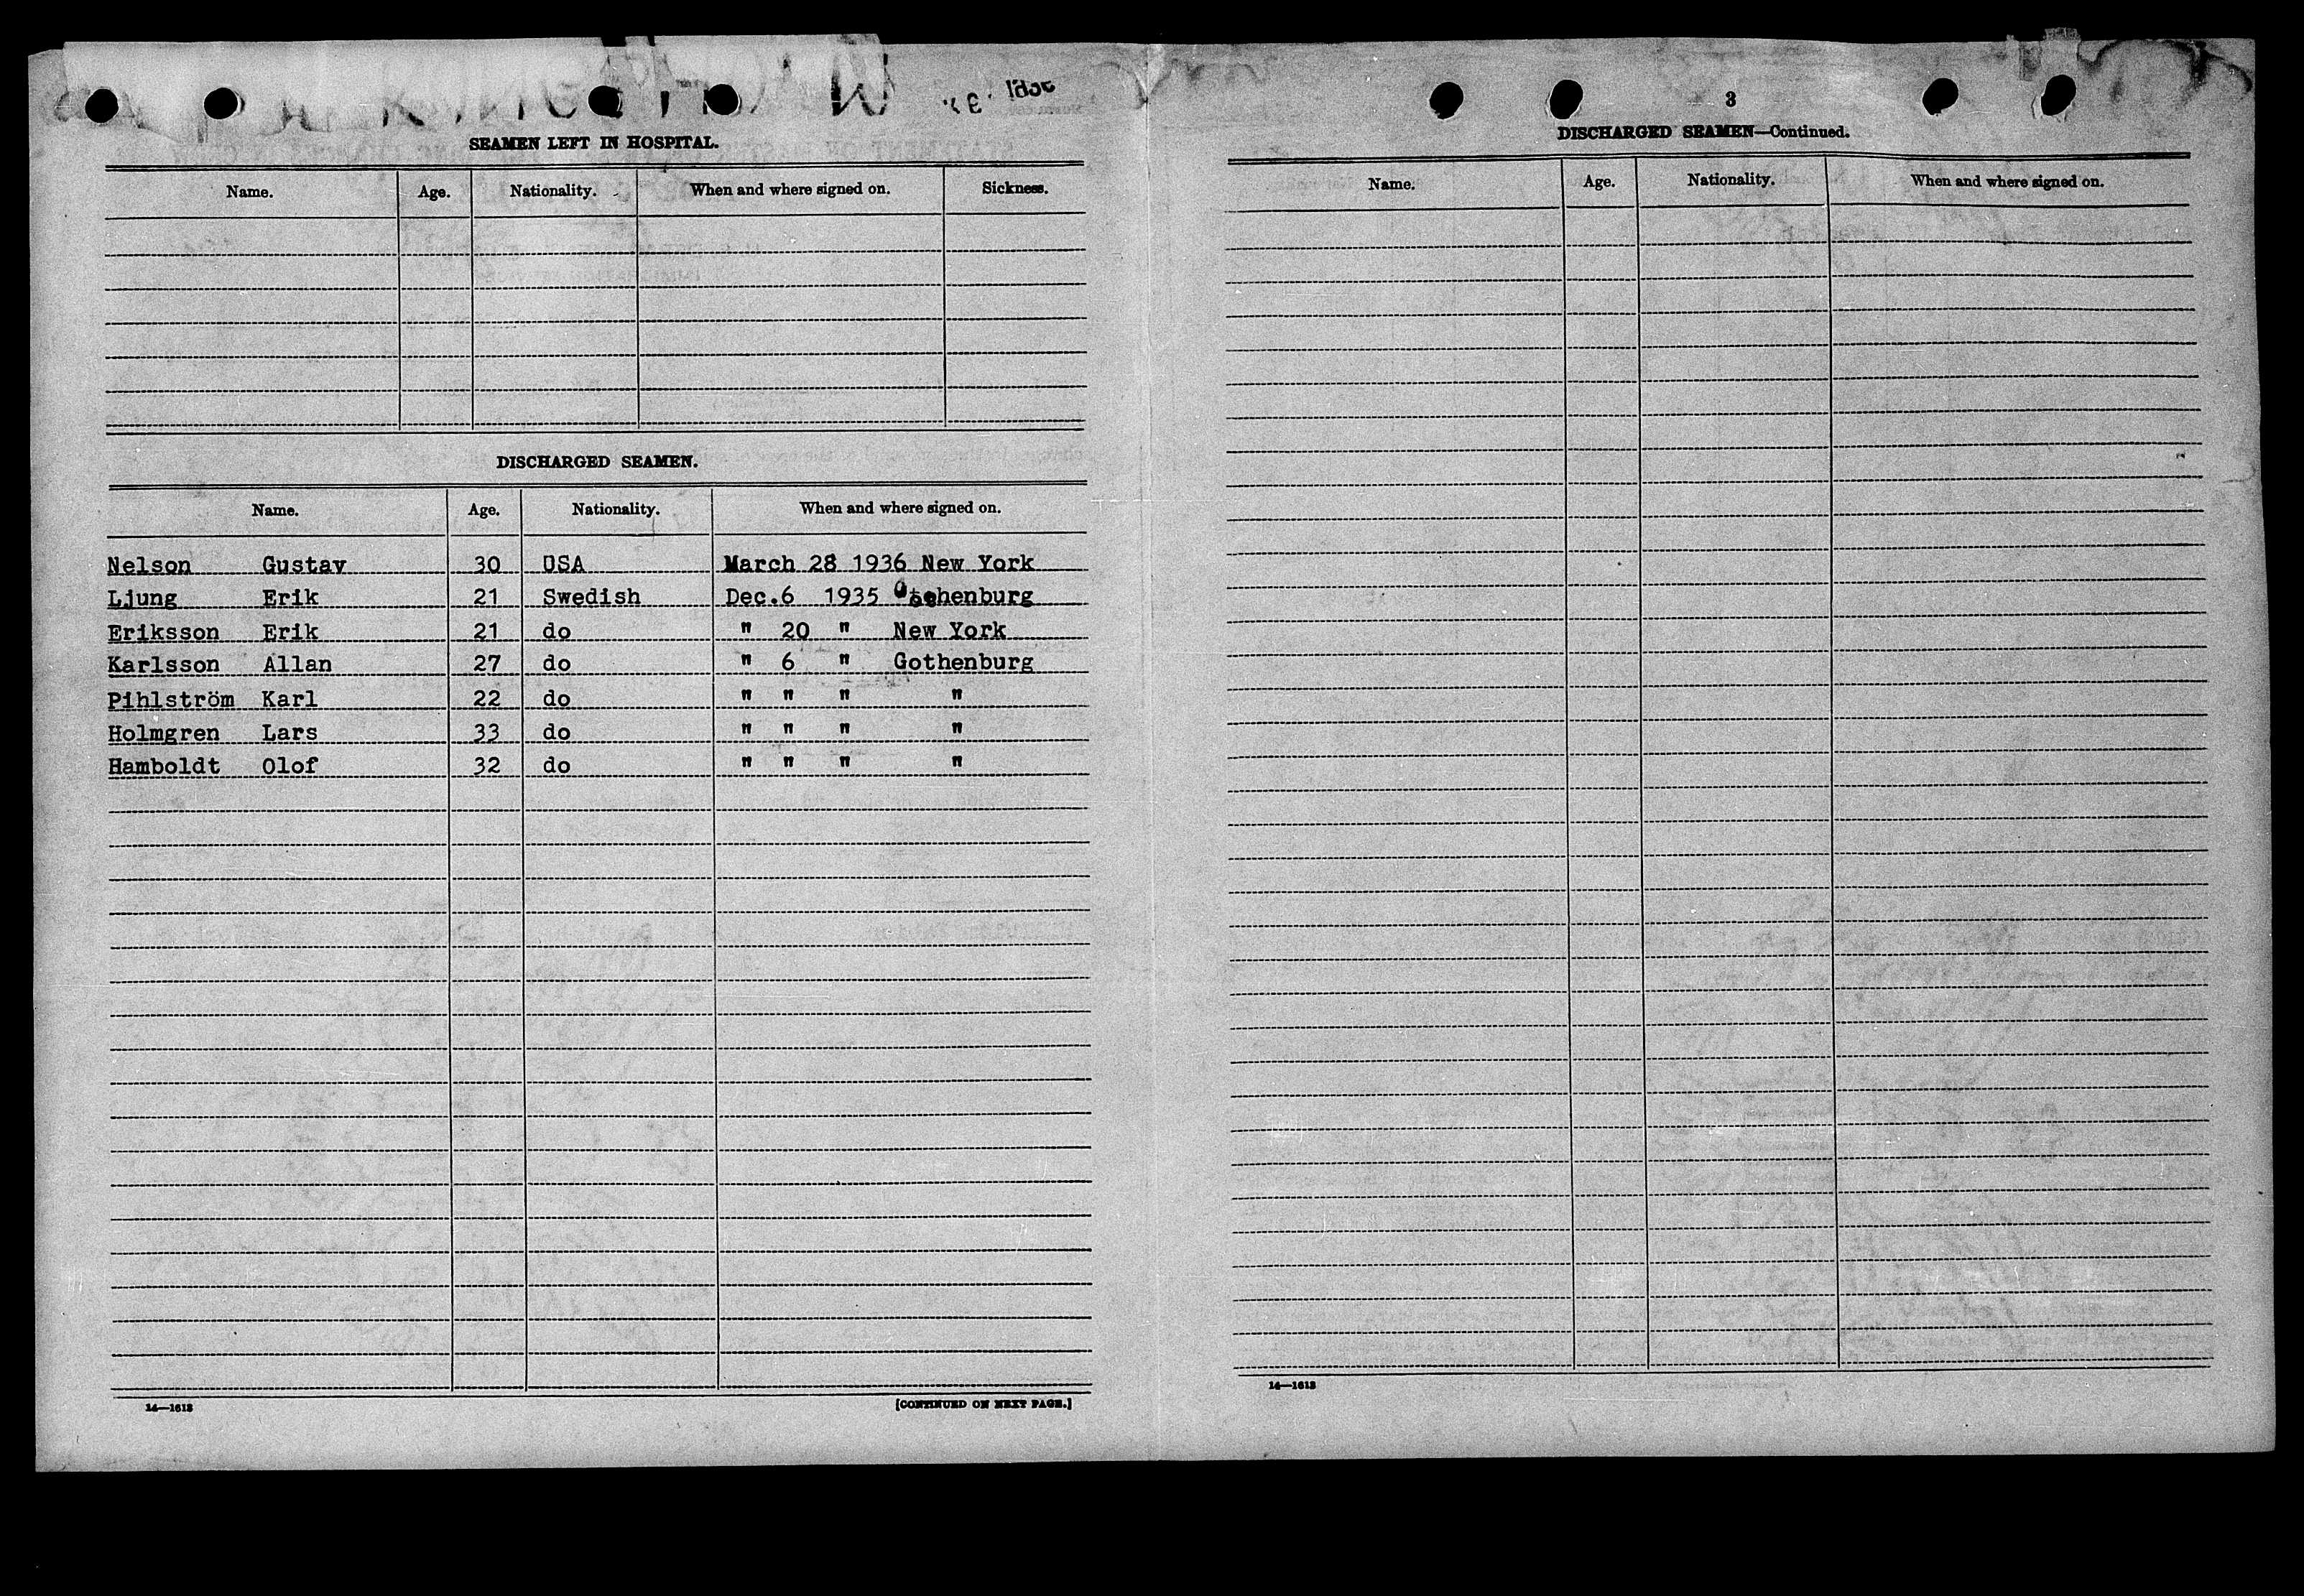 SEAMEN LEFT IN HOSPITAL.
Name. Age. Nationality. When and where signed on. Sickness.
DISCHARGED SEAMEN.
Name. Age. Nationality. When and where signed on.
Nelson Gustav 30 USA March 28 1936 New York
Ljung Erik 21 Swedish Dec.6 1935 Gothenburg
Eriksson Erik 21 do " 20 " New York
Karlsson Allan 27 do " 6 " Gothenburg
Pihlström Karl 22 do " " " "
Holmgren Lars 33 do " " " "
Hamboldt Olof 32 do " " " "
14—1613 [CONTINUED ON NEXT PAGE.]
3
DISCHARGED SEAMEN—Continued.
Name. Age. Nationality. When and where signed on.
14—1613